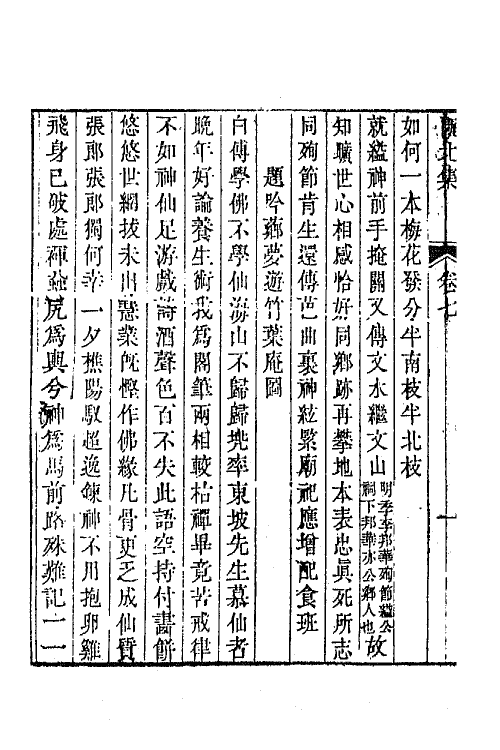 甌北集　卷七　一
如何一本梅花發分半南枝半北枝
就縊神前手掩關又傳文水繼文山明季李邦華殉節縊公祠下邦華亦公鄉人也故
知曠世心相感恰好同鄉跡再攀地本表忠眞死所志
同殉節肯生還傳芭曲裏神絃祭廟祀應增配食班
題吟薌夢遊竹葉庵圖
白傅學佛不學仙海山不歸歸兜率東坡先生慕仙者
晚年好論養生術我爲閣筆兩相較枯禪畢竟苦戒律
不如神仙足游戲詩酒聲色百不失此語空持付畫餅
悠悠世網拔未出慧業旣慳作佛緣凡骨更乏成仙質
張郎張郎獨何幸一夕樵陽馭超逸鍊神不用抱卵雞
飛身已破處褌蝨尻爲輿兮神爲馬前路殊難記一一